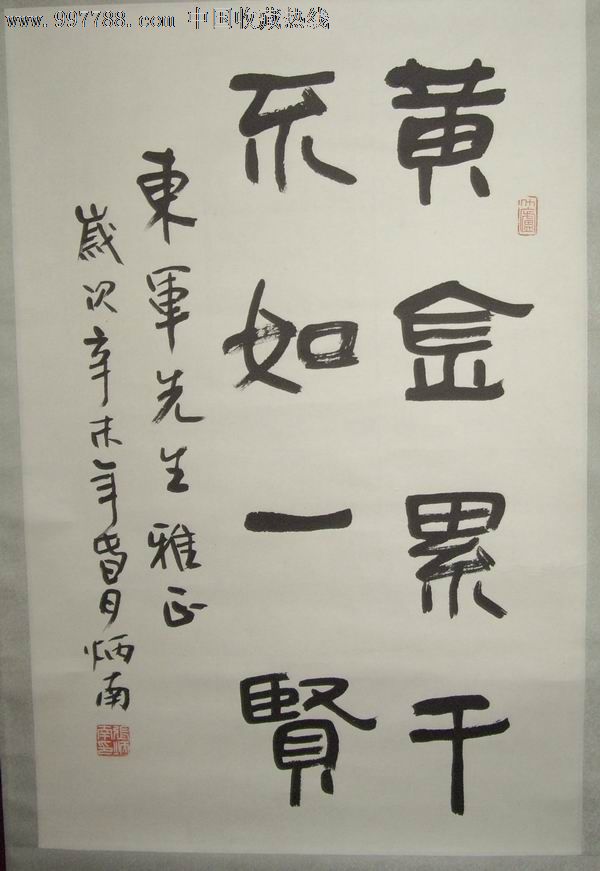 www.997788.com 中国收藏热线
黄金累千
不如一賢
東軍先生雅正
歲次辛未年
月炳南